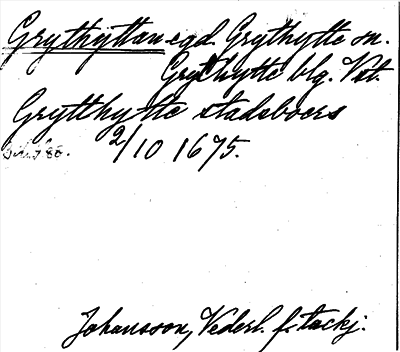 Grythyttan egd. Grythytte sn.
Grythytte blg. Vstl.
Grytthytte stadzboers
2/10 1675.
Johansson, Vederl. f. tackj.